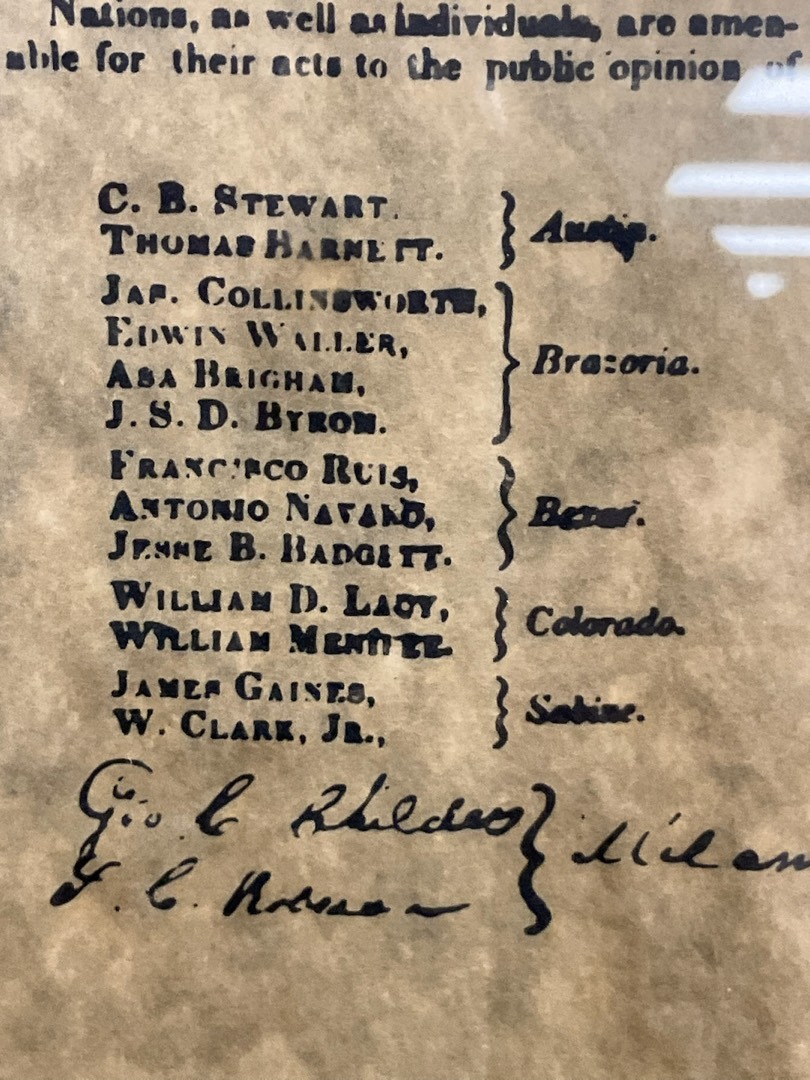 Nations, as well as individuals, are amen-
able for their acts to the public opinion of
C. B. STEWART.
THOMAS BARNETT. } Austin.
JAS. COLLINSWORTH,
EDWIN WALLER,
ASA BRIGHAM, } Brazoria.
J. S. D. BYROM.
FRANCISCO RUIS,
ANTONIO NAVARO, } Bexar.
JESSE B. BADGETT.
WILLIAM D. LACY,
WILLIAM MENIFEE. } Colorado.
JAMES GAINES,
W. CLARK, JR., } Sabine.
Geo C Childers
} Milam
C.